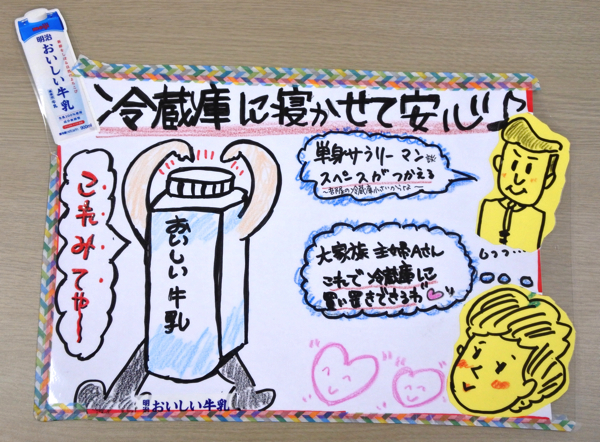 明治
おいしい牛乳
冷蔵庫に寝かせて安心♪
これみてや〜
おいしい牛乳
単身サラリーマン
スペースがつかえる
大家族 主婦Aさん
これで 冷蔵庫に
買い置きできるわ
明治おいしい牛乳